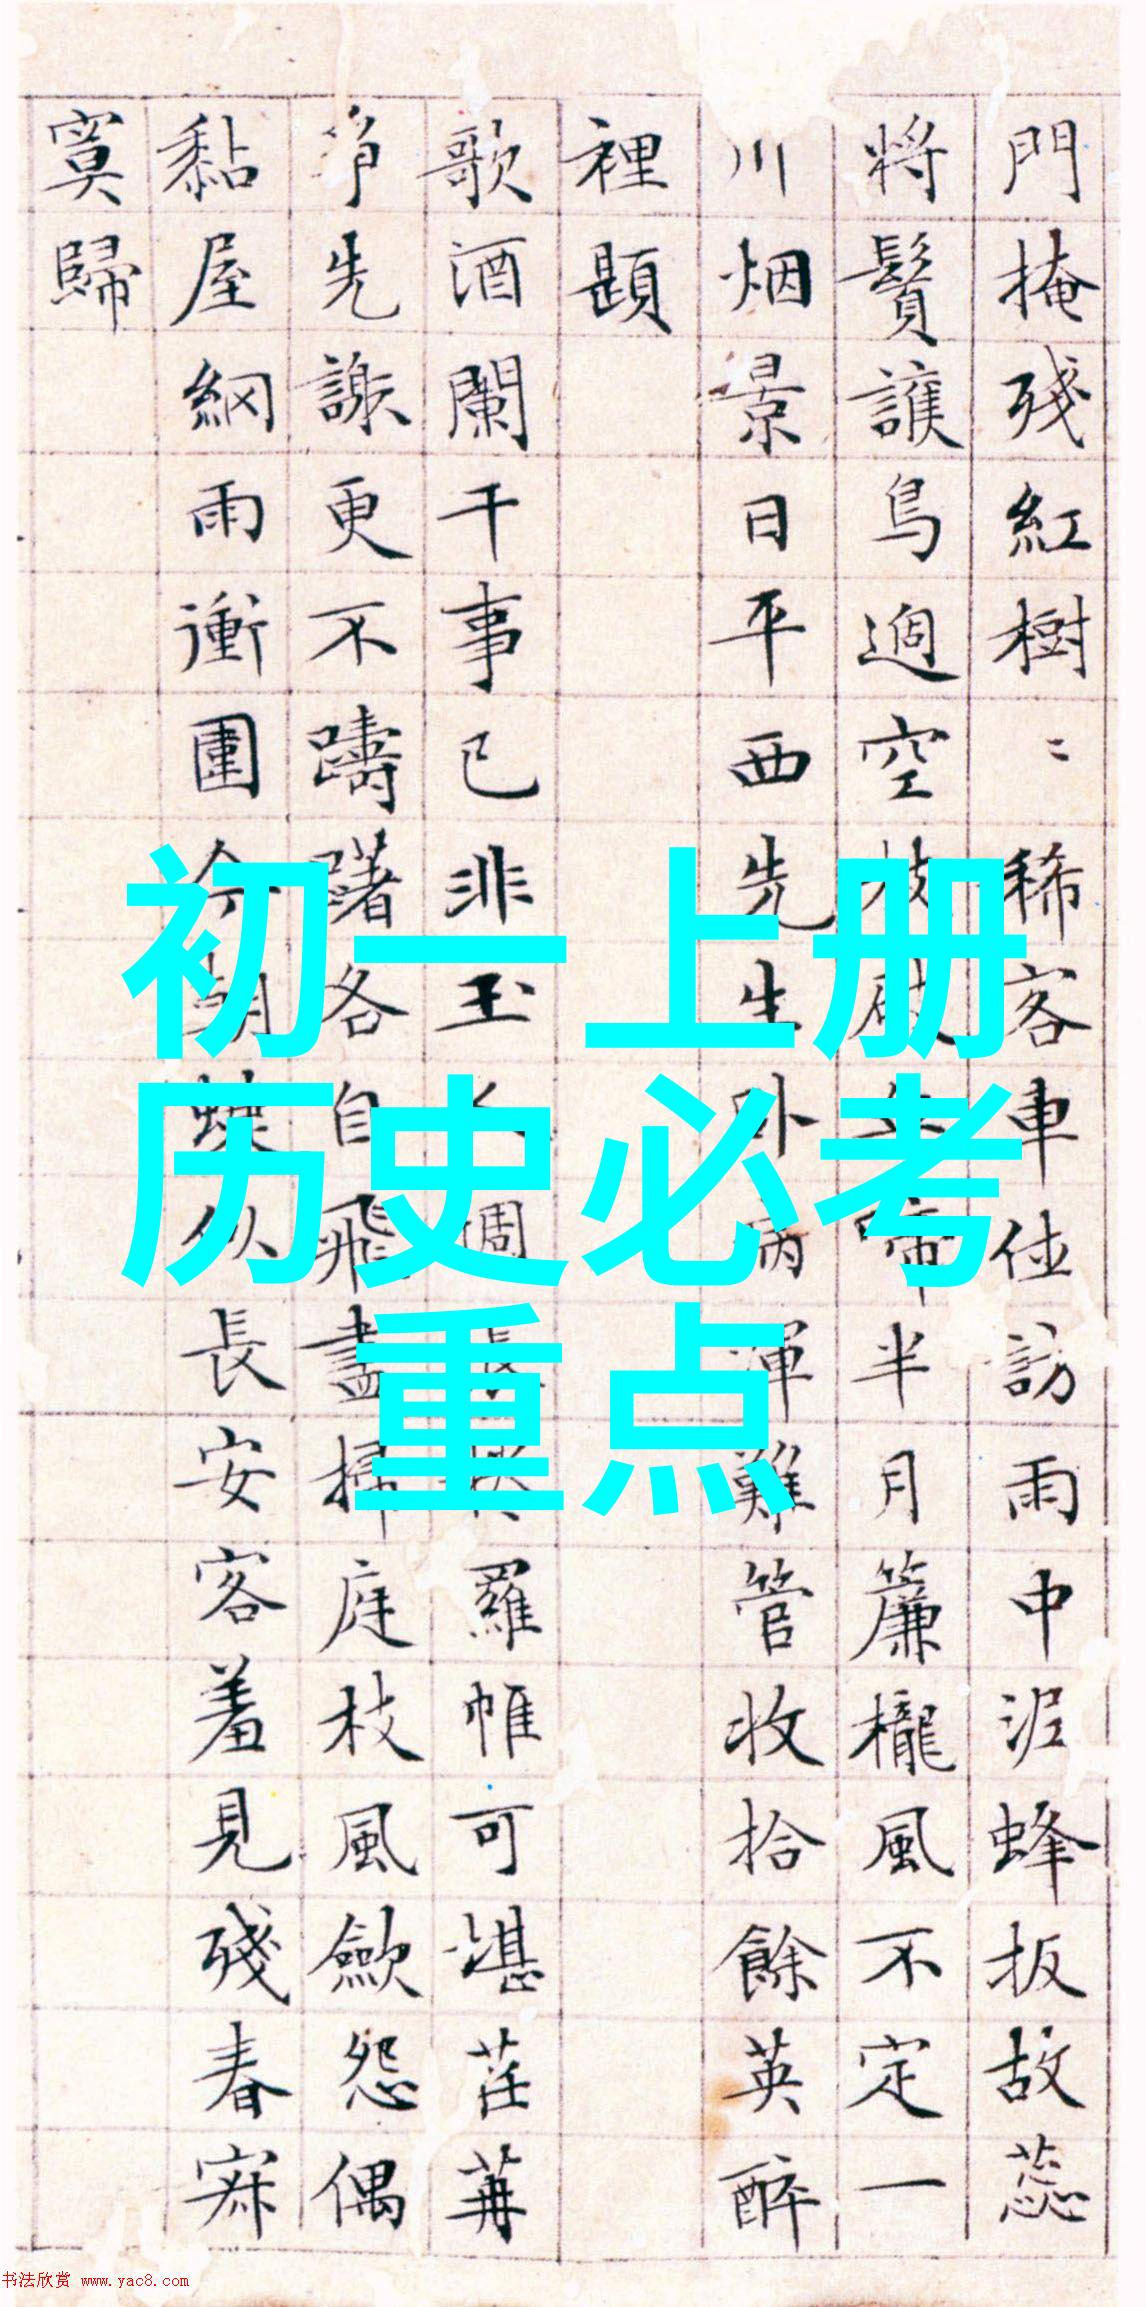 初一上册
历史必考
重点
門掩殘紅樹〻稀客車住訪雨中泥蜂扳故蕊
將鬚護鳥過空枝破半月簾櫳風不定一
川烟景日平西先生卧病渾難管收拾餘英醉
裡題
歌酒闌干事已非玉羅帷可堪茬苒
先謝更不躊躇各自飛盡掃庭枝風歛怨偶
黏屋網雨衝圍今朝蝶似長安客羞見殘春寂
寞歸
书法欣赏 www.yac8.com